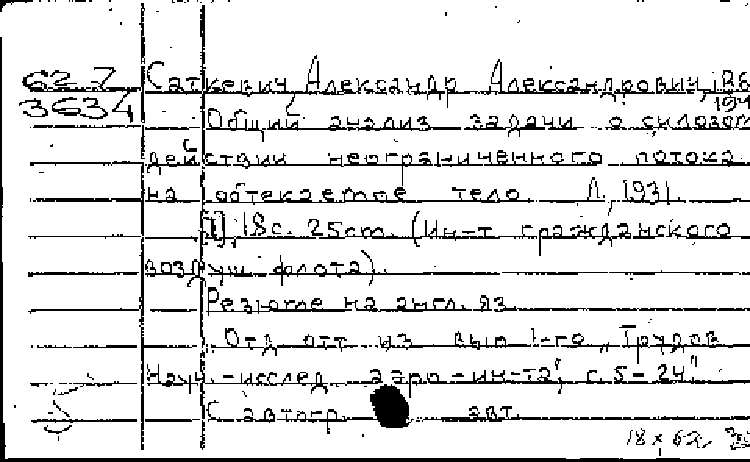 62-7 Саткевич, Александр Александрович, 186
3634
Общий анализ задачи о силовом
действии неограниченного потока
на обтекаемое тело. Л., 1931.
[1], 18 с. 25 см. (Ин-т гражданского
воздуш. флота).
Резюме на англ. яз.
Отд. отт. из вып. 1-го „Трудов
Науч.-исслед. аэро-ин-та", с. 5-24".
С автогр. авт.